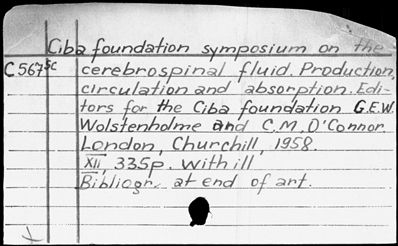 Ciba foundation symposium on the
C567sc cerebrospinal fluid. Production,
circulation and absorption. Edi-
tors for the Ciba foundation G.E.W.
Wolstenholme and C.M. O'Connor
London, Churchill, 1958.
XII, 335p. with ill
Bibliogr. at end of art.